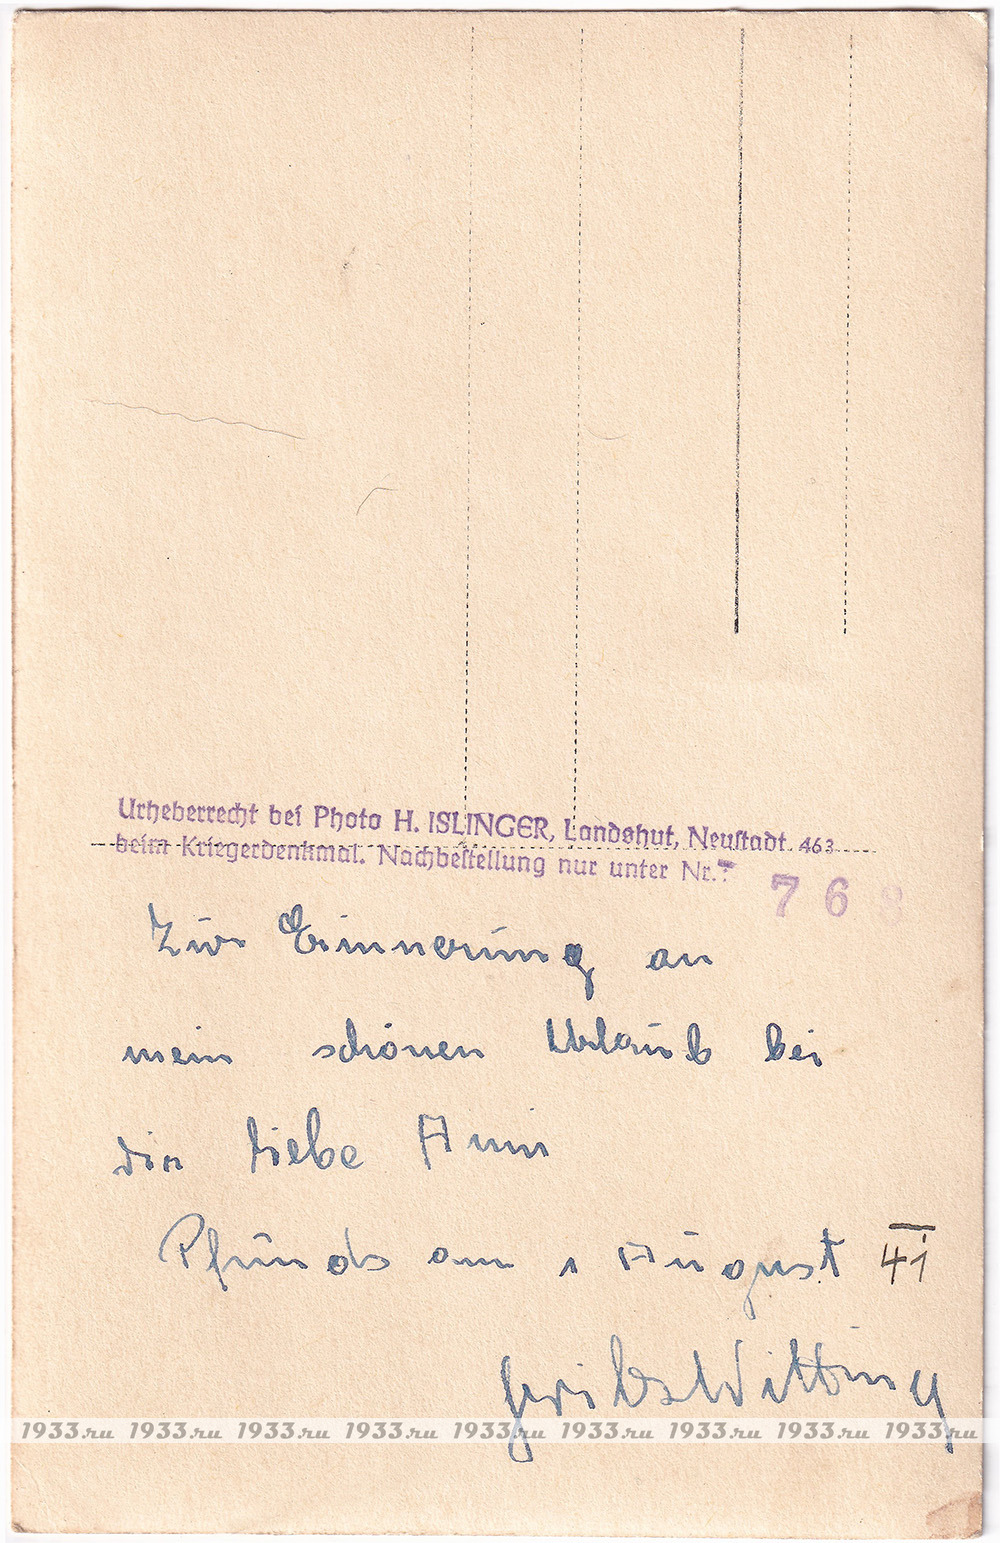 Urheberrecht bei Photo H. ISLINGER, Landshut, Neustadt 463
beim Kriegerdenkmal. Nachbestellung nur unter Nr.:
7 6 8
Zur Erinnerung an
mein schönen Urlaub bei
dir liebe Anni
Pfunds am 1 August 41
Witting
1933.ru 1933.ru 1933.ru 1933.ru 1933.ru 1933.ru 1933.ru 1933.ru 1933.ru